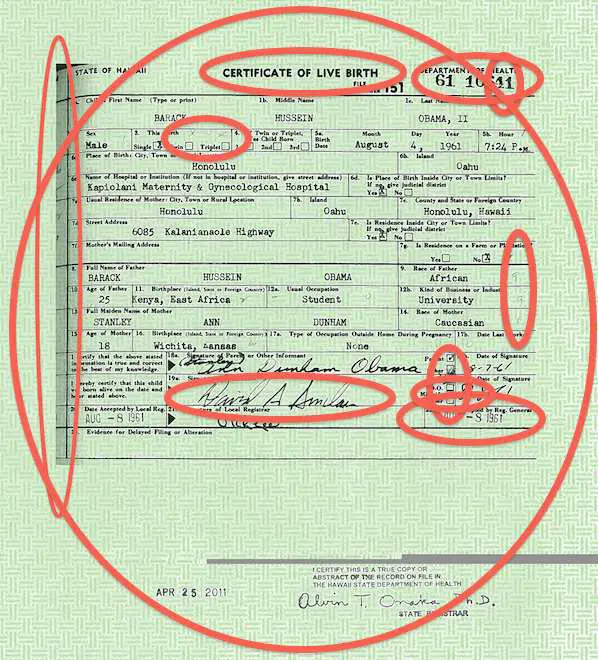 STATE OF HAWAII CERTIFICATE OF LIVE BIRTH DEPARTMENT OF HEALTH
FILE 151 61 10641
1a. Child's First Name (Type or print) 1b. Middle Name 1c. Last
BARACK HUSSEIN OBAMA, II
Sex 3. This Birth 4. If Twin or Triplet, 5a. Month Day Year 5b. Hour
Was Child Born Birth
Male Single X Twin Triplet 1st 2nd 3rd Date August 4, 1961 7:24 P.M.
6a. Place of Birth: City, Town 6b. Island
Honolulu Oahu
6c. Name of Hospital or Institution (If not in hospital or institution, give street address) 6d. Is Place of Birth Inside City or Town Limits?
If no, give judicial district
Kapiolani Maternity & Gynecological Hospital Yes X No
7a. Usual Residence of Mother: City, Town or Rural Location 7b. Island 7c. County and State or Foreign Country
Honolulu Oahu Honolulu, Hawaii
7d. Street Address 7e. Is Residence Inside City or Town Limits?
If no, give judicial district
6085 Kalanianaole Highway Yes X No
7f. Mother's Mailing Address 7g. Is Residence on a Farm or Plantation?
Yes No X
8. Full Name of Father 9. Race of Father
BARACK HUSSEIN OBAMA African 9
10. Age of Father 11. Birthplace (Island, State or Foreign Country) 12a. Usual Occupation 12b. Kind of Business or Industry
25 Kenya, East Africa Student University 9
13. Full Maiden Name of Mother 14. Race of Mother
STANLEY ANN DUNHAM Caucasian
15. Age of Mother 16. Birthplace (Island, State or Foreign Country) 17a. Type of Occupation Outside Home During Pregnancy 17b. Date Last Worked
18 Wichita, Kansas None
I certify that the above stated 18a. Signature of Parent or Other Informant Parent Date of Signature
information is true and correct (Stanley)
to the best of my knowledge. Ann Dunham Obama 8-7-61
I hereby certify that this child 19a. Date of Signature
was born alive on the date and M.D.
hour stated above. David A Sinclair
20. Date Accepted by Local Reg. 21. Signature of Local Registrar by Reg. General
AUG -8 1961 -8 1961
23. Evidence for Delayed Filing or Alteration
I CERTIFY THIS IS A TRUE COPY OR
ABSTRACT OF THE RECORD ON FILE IN
THE HAWAII STATE DEPARTMENT OF HEALTH
APR 25 2011 Alvin T. Onaka Ph.D.
STATE REGISTRAR